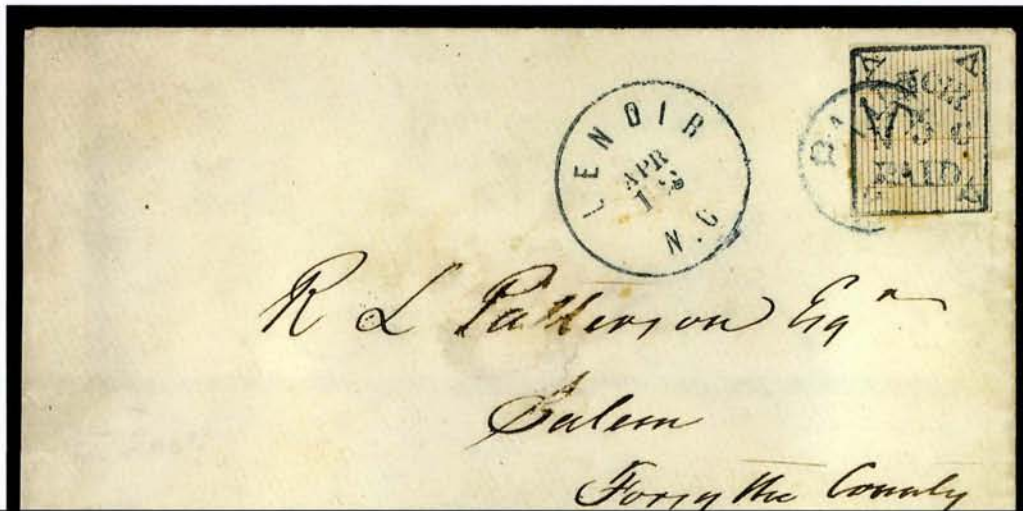 LENOIR
APR
N.C
PAID
R L Patterson Esqr
Salem
Forsythe County